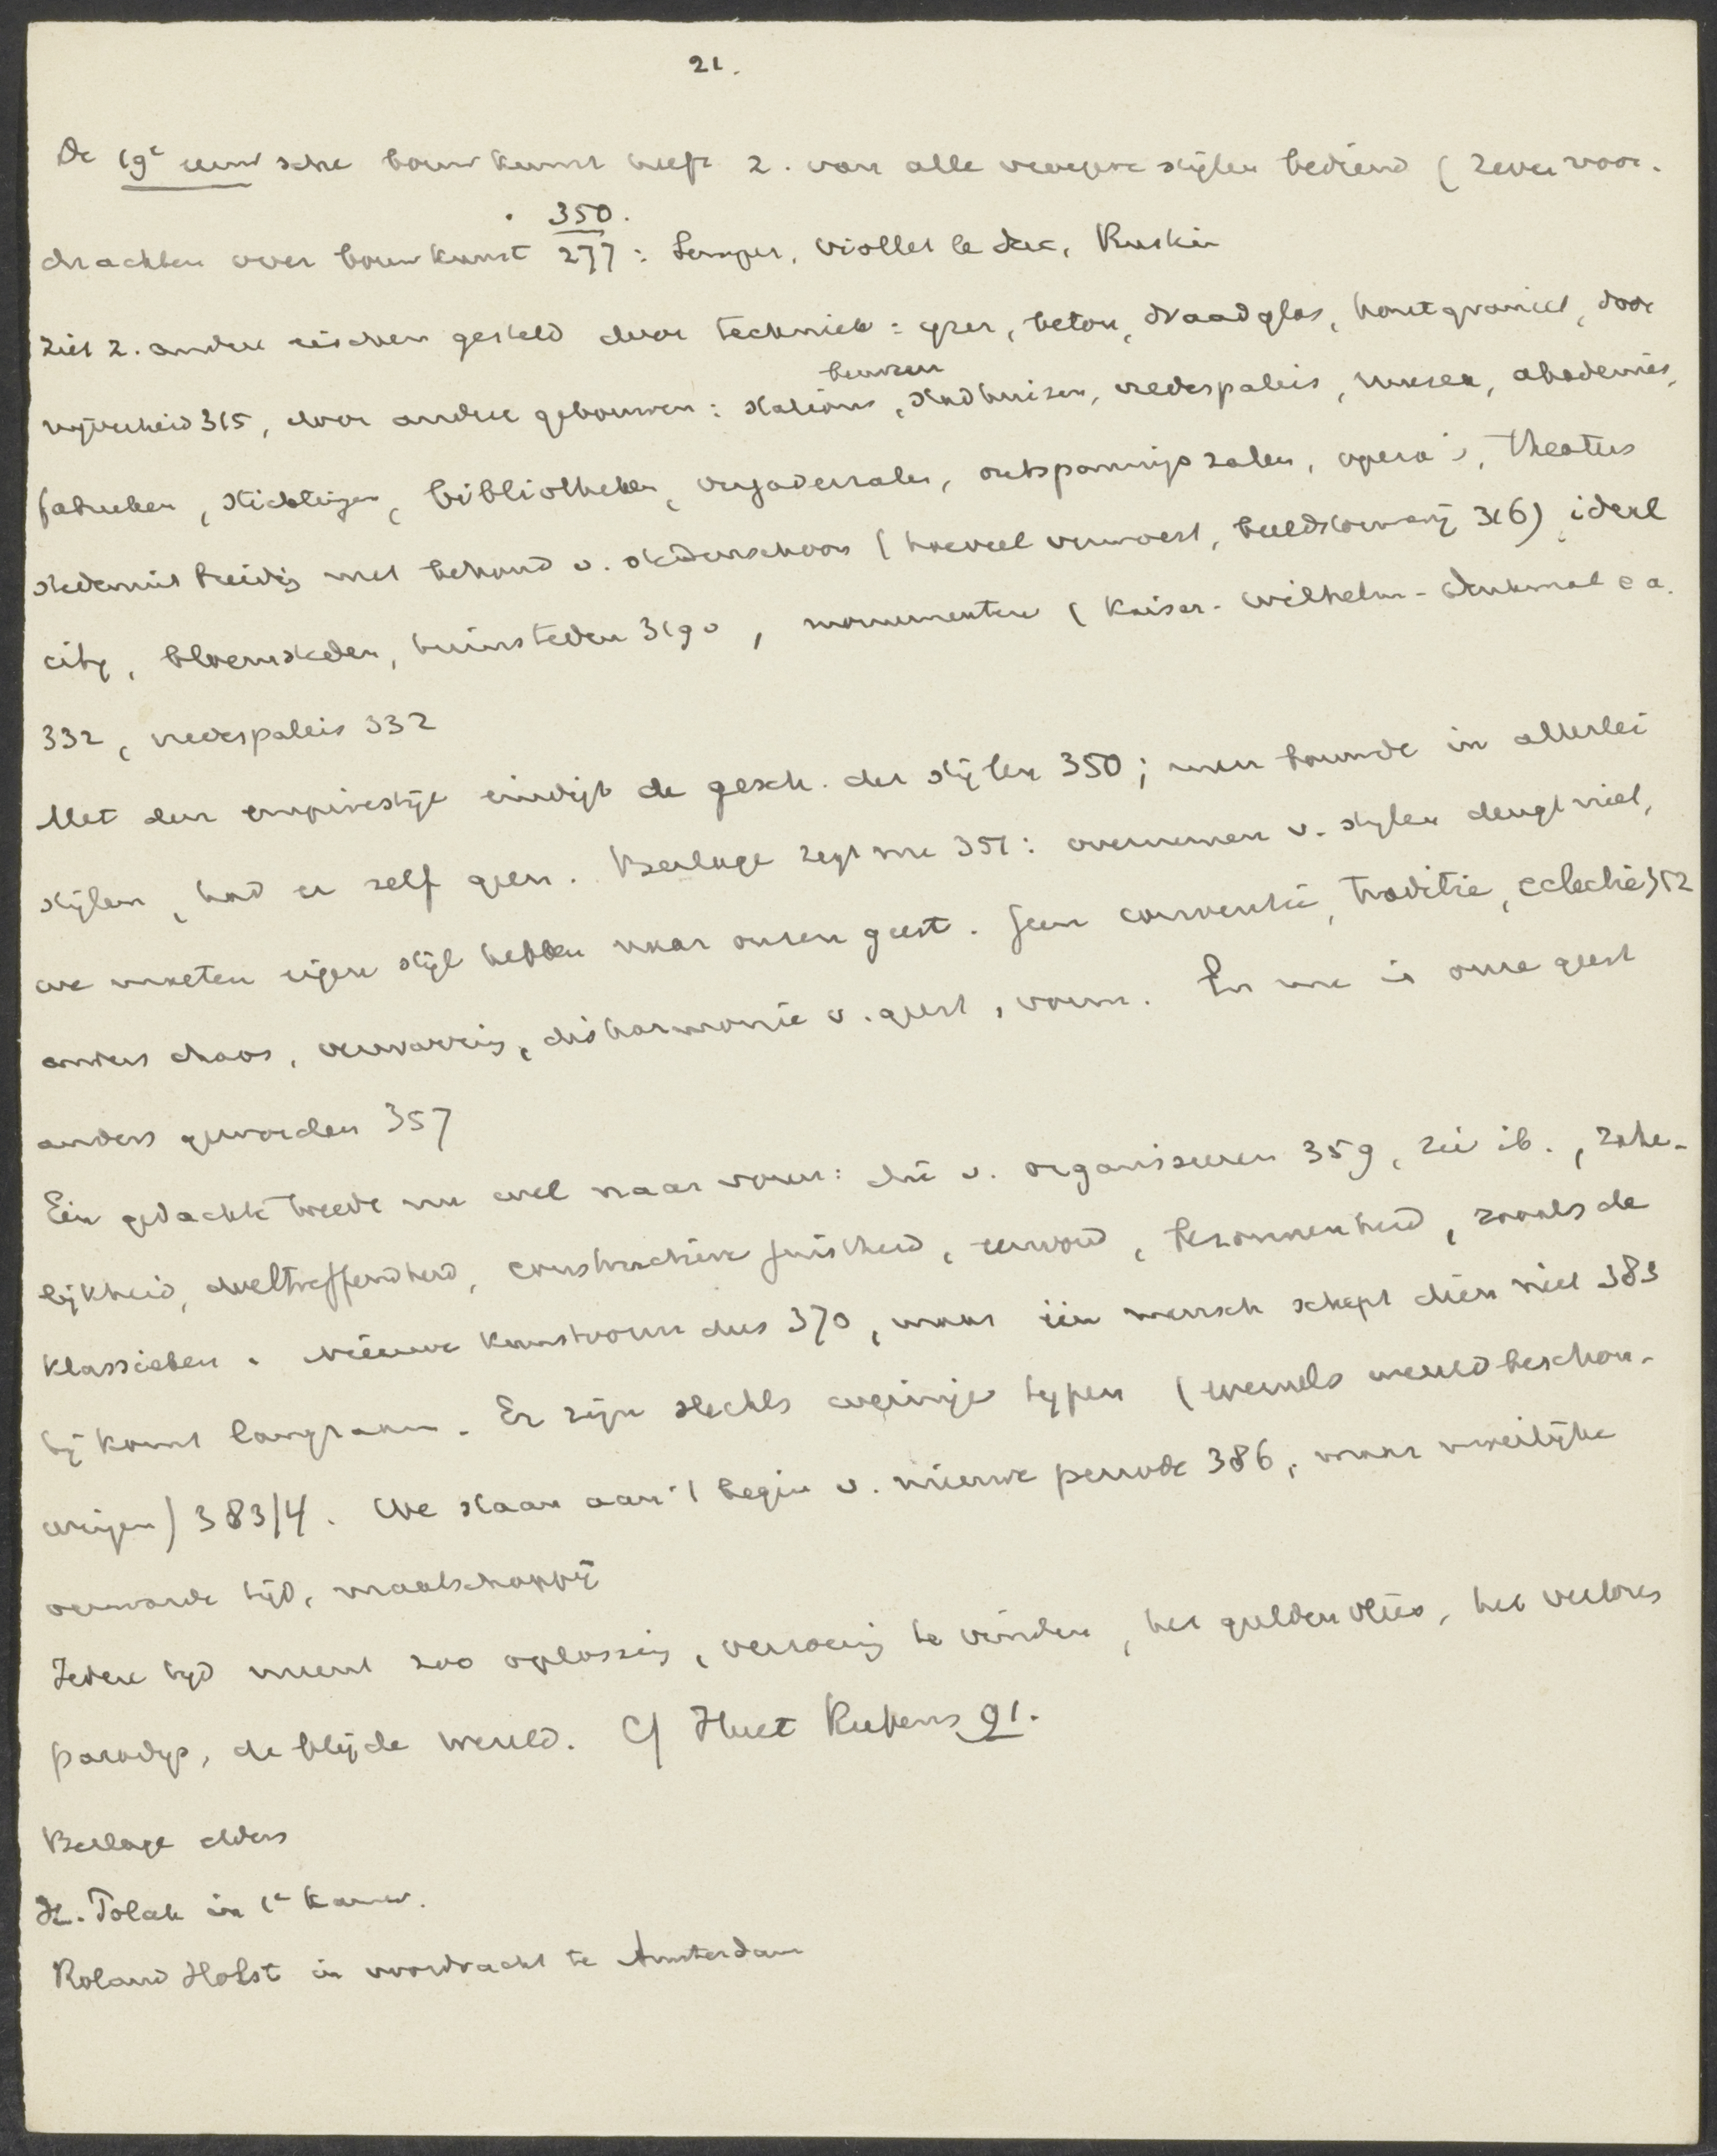 21.
De 19e eeuwsche bouwkunst heeft z. van alle vroegere stijlen bediend (Zeven voor-
350.
drachten over bouwkunst 277: Semper, Viollet le Duc, Ruskin
ziet z. andere eischen gesteld door techniek: yzer, beton, draadglas, houtgraniet, door
beurzen
nijverheid 315, door andere gebouwen: stations, stadhuizen, vredespaleis, musea, akademies,
fabrieken, stichtingen, bibliotheken, vergaderzalen, ontspanningszalen, opera's, theaters
stedenuitbreiding met behoud v. stedenschoon (hoeveel verwoest, beeldstormerij 316) ideal
city, bloemsteden, tuinsteden 319 v, monumenten (Kaiser-Wilhelm-Denkmal e a.
332, vredespaleis 332
Met den empirestijl eindigt de gesch. der stijlen 350; men bouwde in allerlei
stijlen, had er zelf geen. Berlage zegt nu 351: overnemen v. stylen deugt niet,
we moeten eigen stijl hebben naar onzen geest. Geen conventie, traditie, eclectie 352
anders chaos, verwarring, disharmonie v. geest, vorm. En nu is onze geest
anders geworden 357
Eén gedachte treedt nu wel naar voren: die v. organiseeren 359, zie ib., zake-
lijkheid, doeltreffendheid, constructieve juistheid, eenvoud, bezonnenheid, zooals de
klassieken. Nieuwe kunstvorm dus 370, maar één mensch schept dien niet 383
hij komt langzaam. Er zijn slechts weinige typen (evenals wereldbeschou-
wingen) 383/4. We staan aan 't begin v. nieuwe periode 386, maar moeilijke
verwarde tijd, maatschappij
Iedere tyd meent zoo oplossing, verzoening te vinden, het gulden vlies, het verloren
paradys, de blijde wereld. Cf Huet Rubens 91.
Berlage elders
H. Polak in 1e Kamer.
Roland Holst in voordracht te Amsterdam